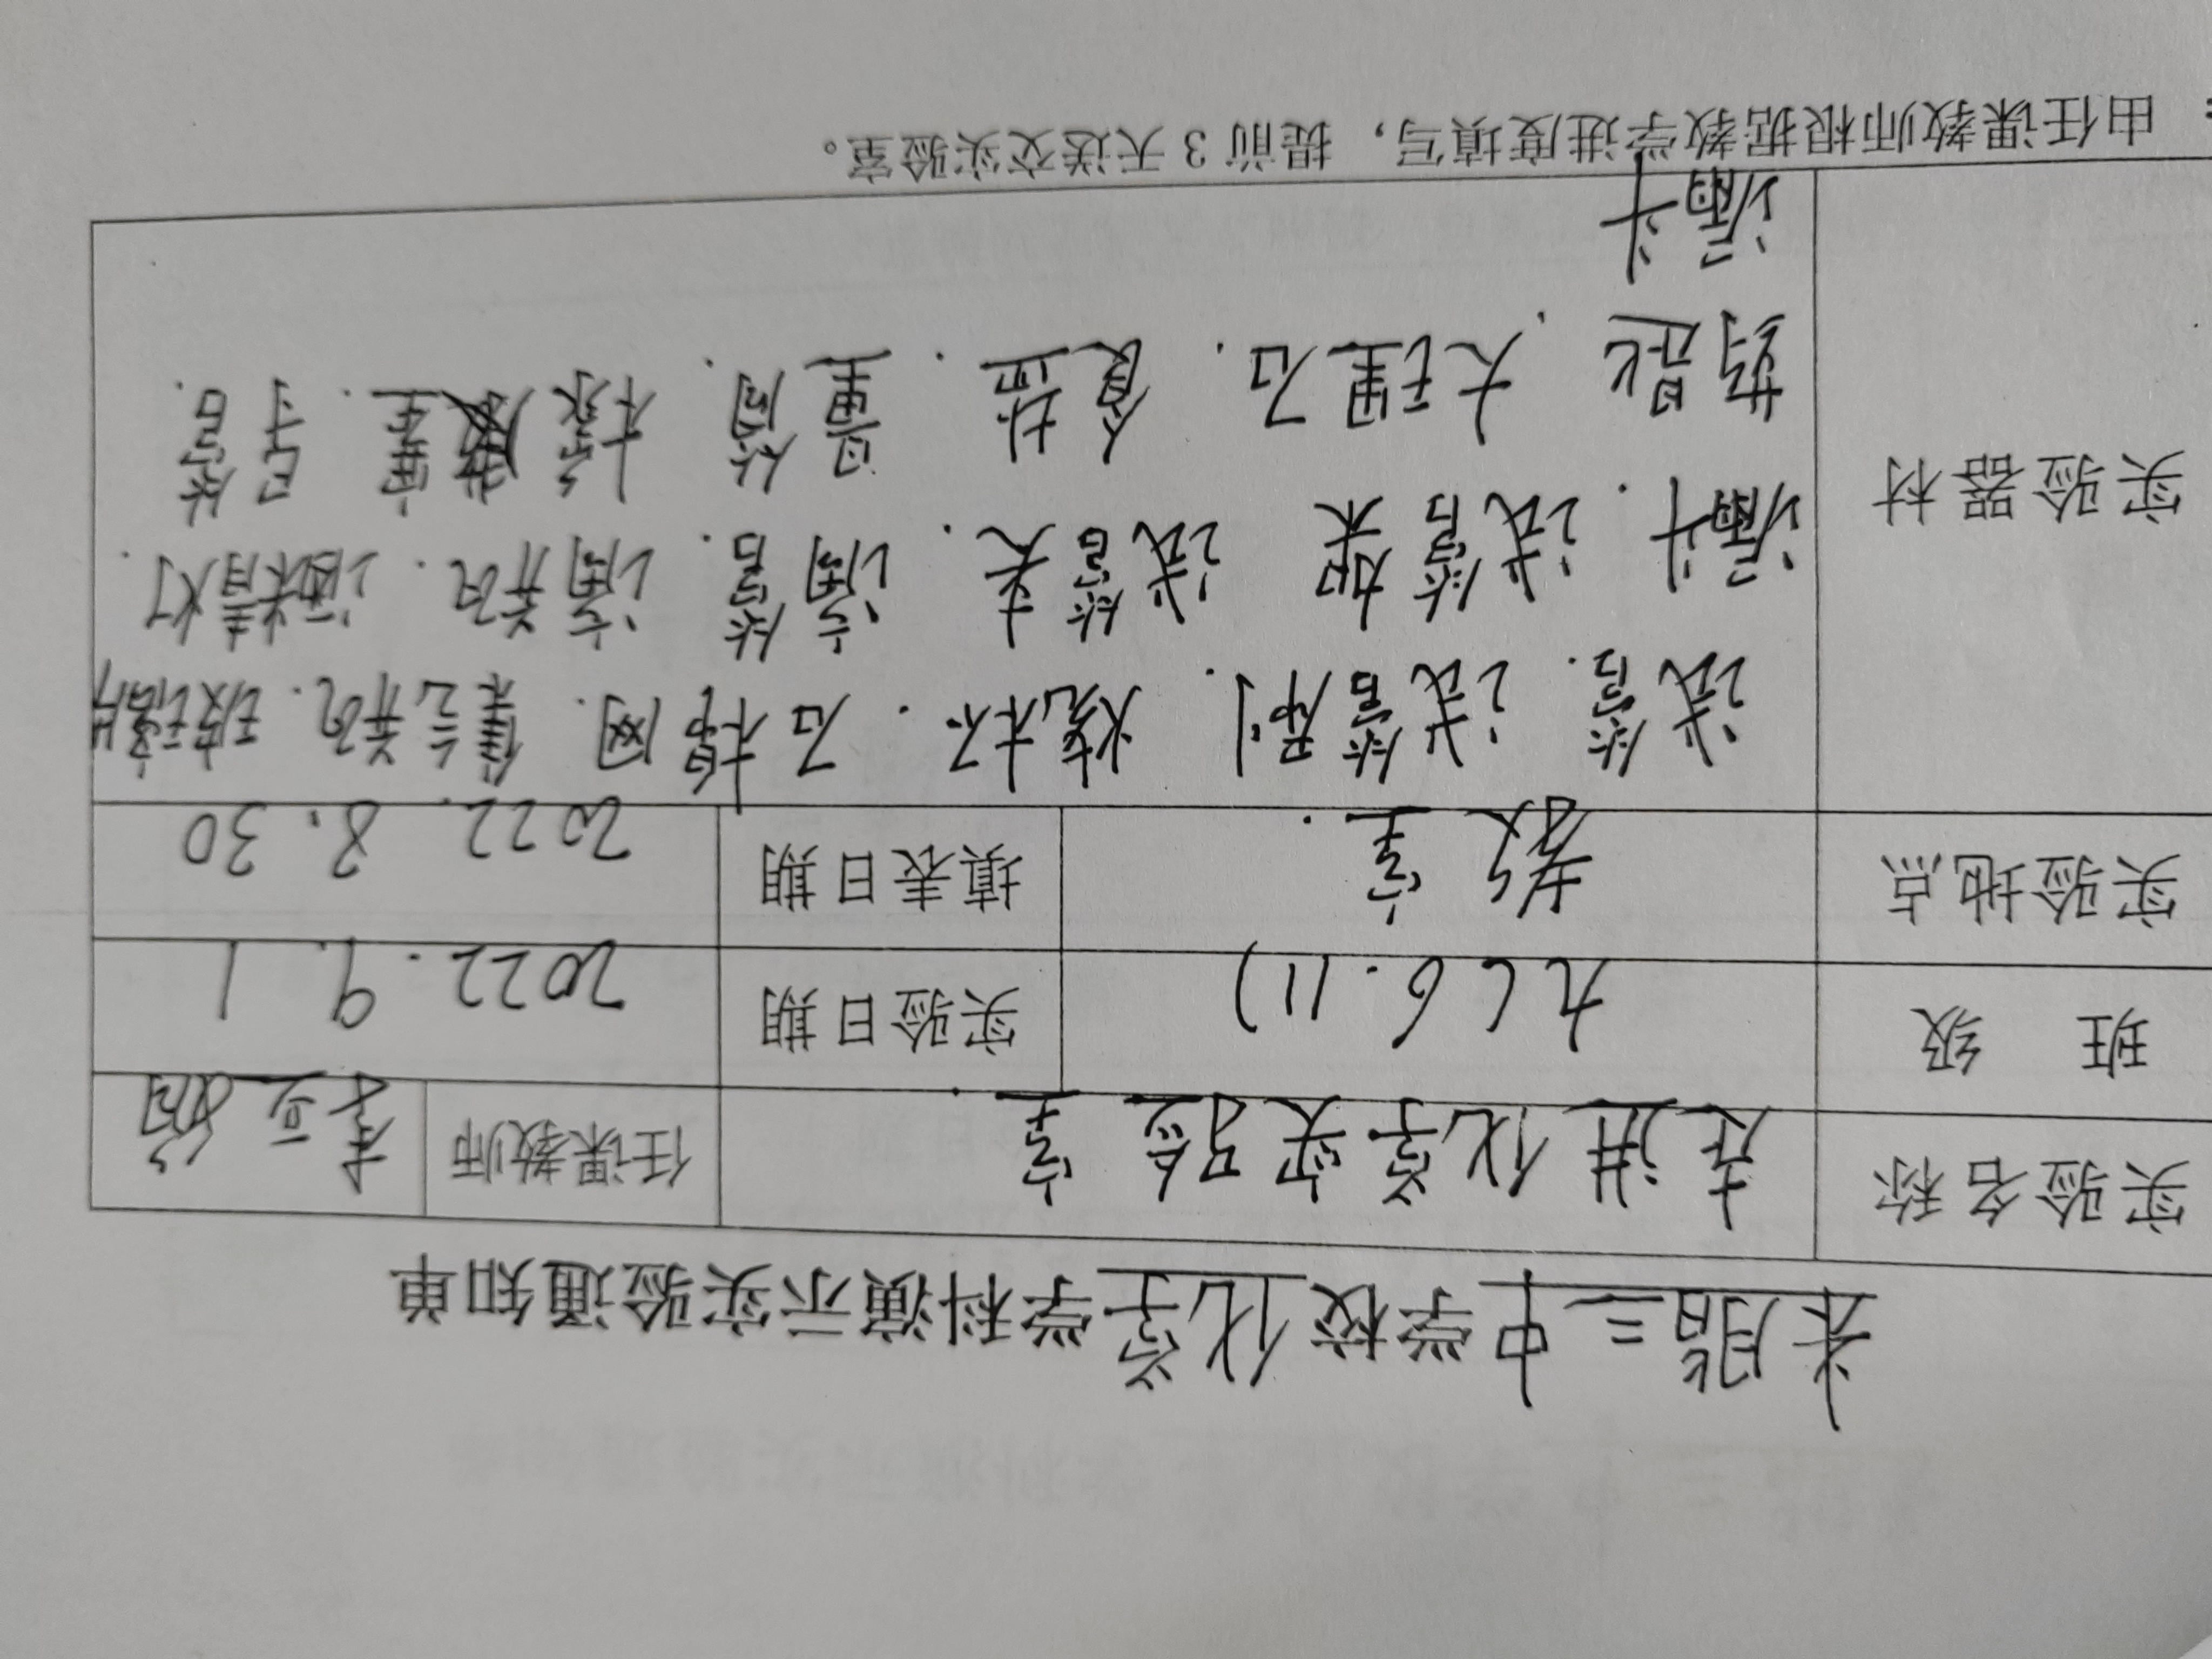 米脂三中学校化学学科演示实验通知单
实验名称 走进化学实验室. 任课教师
班 级 九(6.11) 实验日期 2022.9.1
实验地点 教室. 填表日期 2022.8.30
实验器材 试管. 试管刷. 烧杯. 石棉网. 集气瓶. 玻璃片
漏斗. 试管架 试管夹. 滴管. 滴瓶. 酒精灯.
药匙. 大理石. 食盐. 量筒. 橡胶塞. 导管.
漏斗
由任课教师根据教学进度填写，提前 3 天送交实验室。